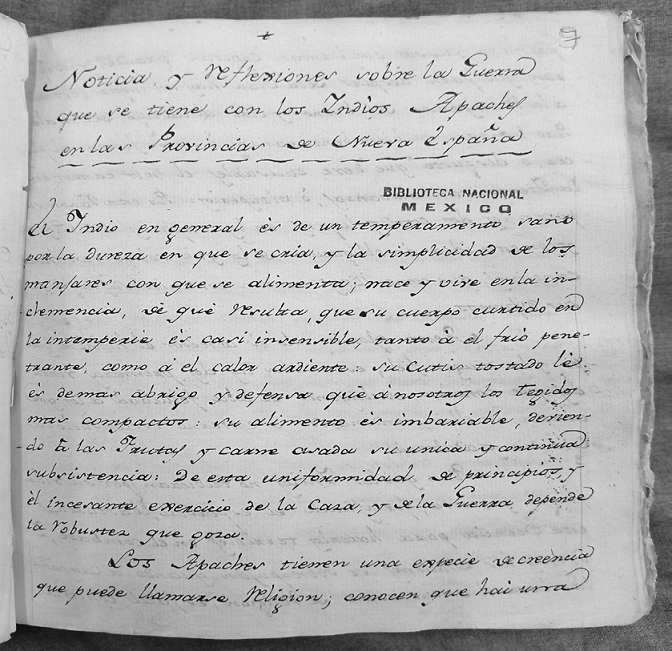 +
9
Noticia y reflexiones sobre la Guerra
que se tiene con los Indios Apaches
en las Provincias de Nueva España
BIBLIOTECA NACIONAL
MEXICO
El Indio en general ès de un temperamento sano
por la dureza en que se cria, y la simplicidad de los
manjares con que se alimenta; nace y vive en la in-
clemencia, de què resulta, que su cuerpo curtido en
la intemperie ès casi insensible, tanto à el frio pene-
trante, como à el calor ardiente: su cutis tostado lè
ès de mas abrigo y defensa què à nosotros los tegidos
mas compactos: su alimento ès imbariable, devien-
do à las Frutas y carne asada su unica y continùa
subsistencia: De esta uniformidad de principios, y
èl incesante exercicio de la Caza, y de la Guerra depende
la robustez que goza.
Los Apaches tienen una especie de creencia
que puede llamarse religion; conocen que hai una